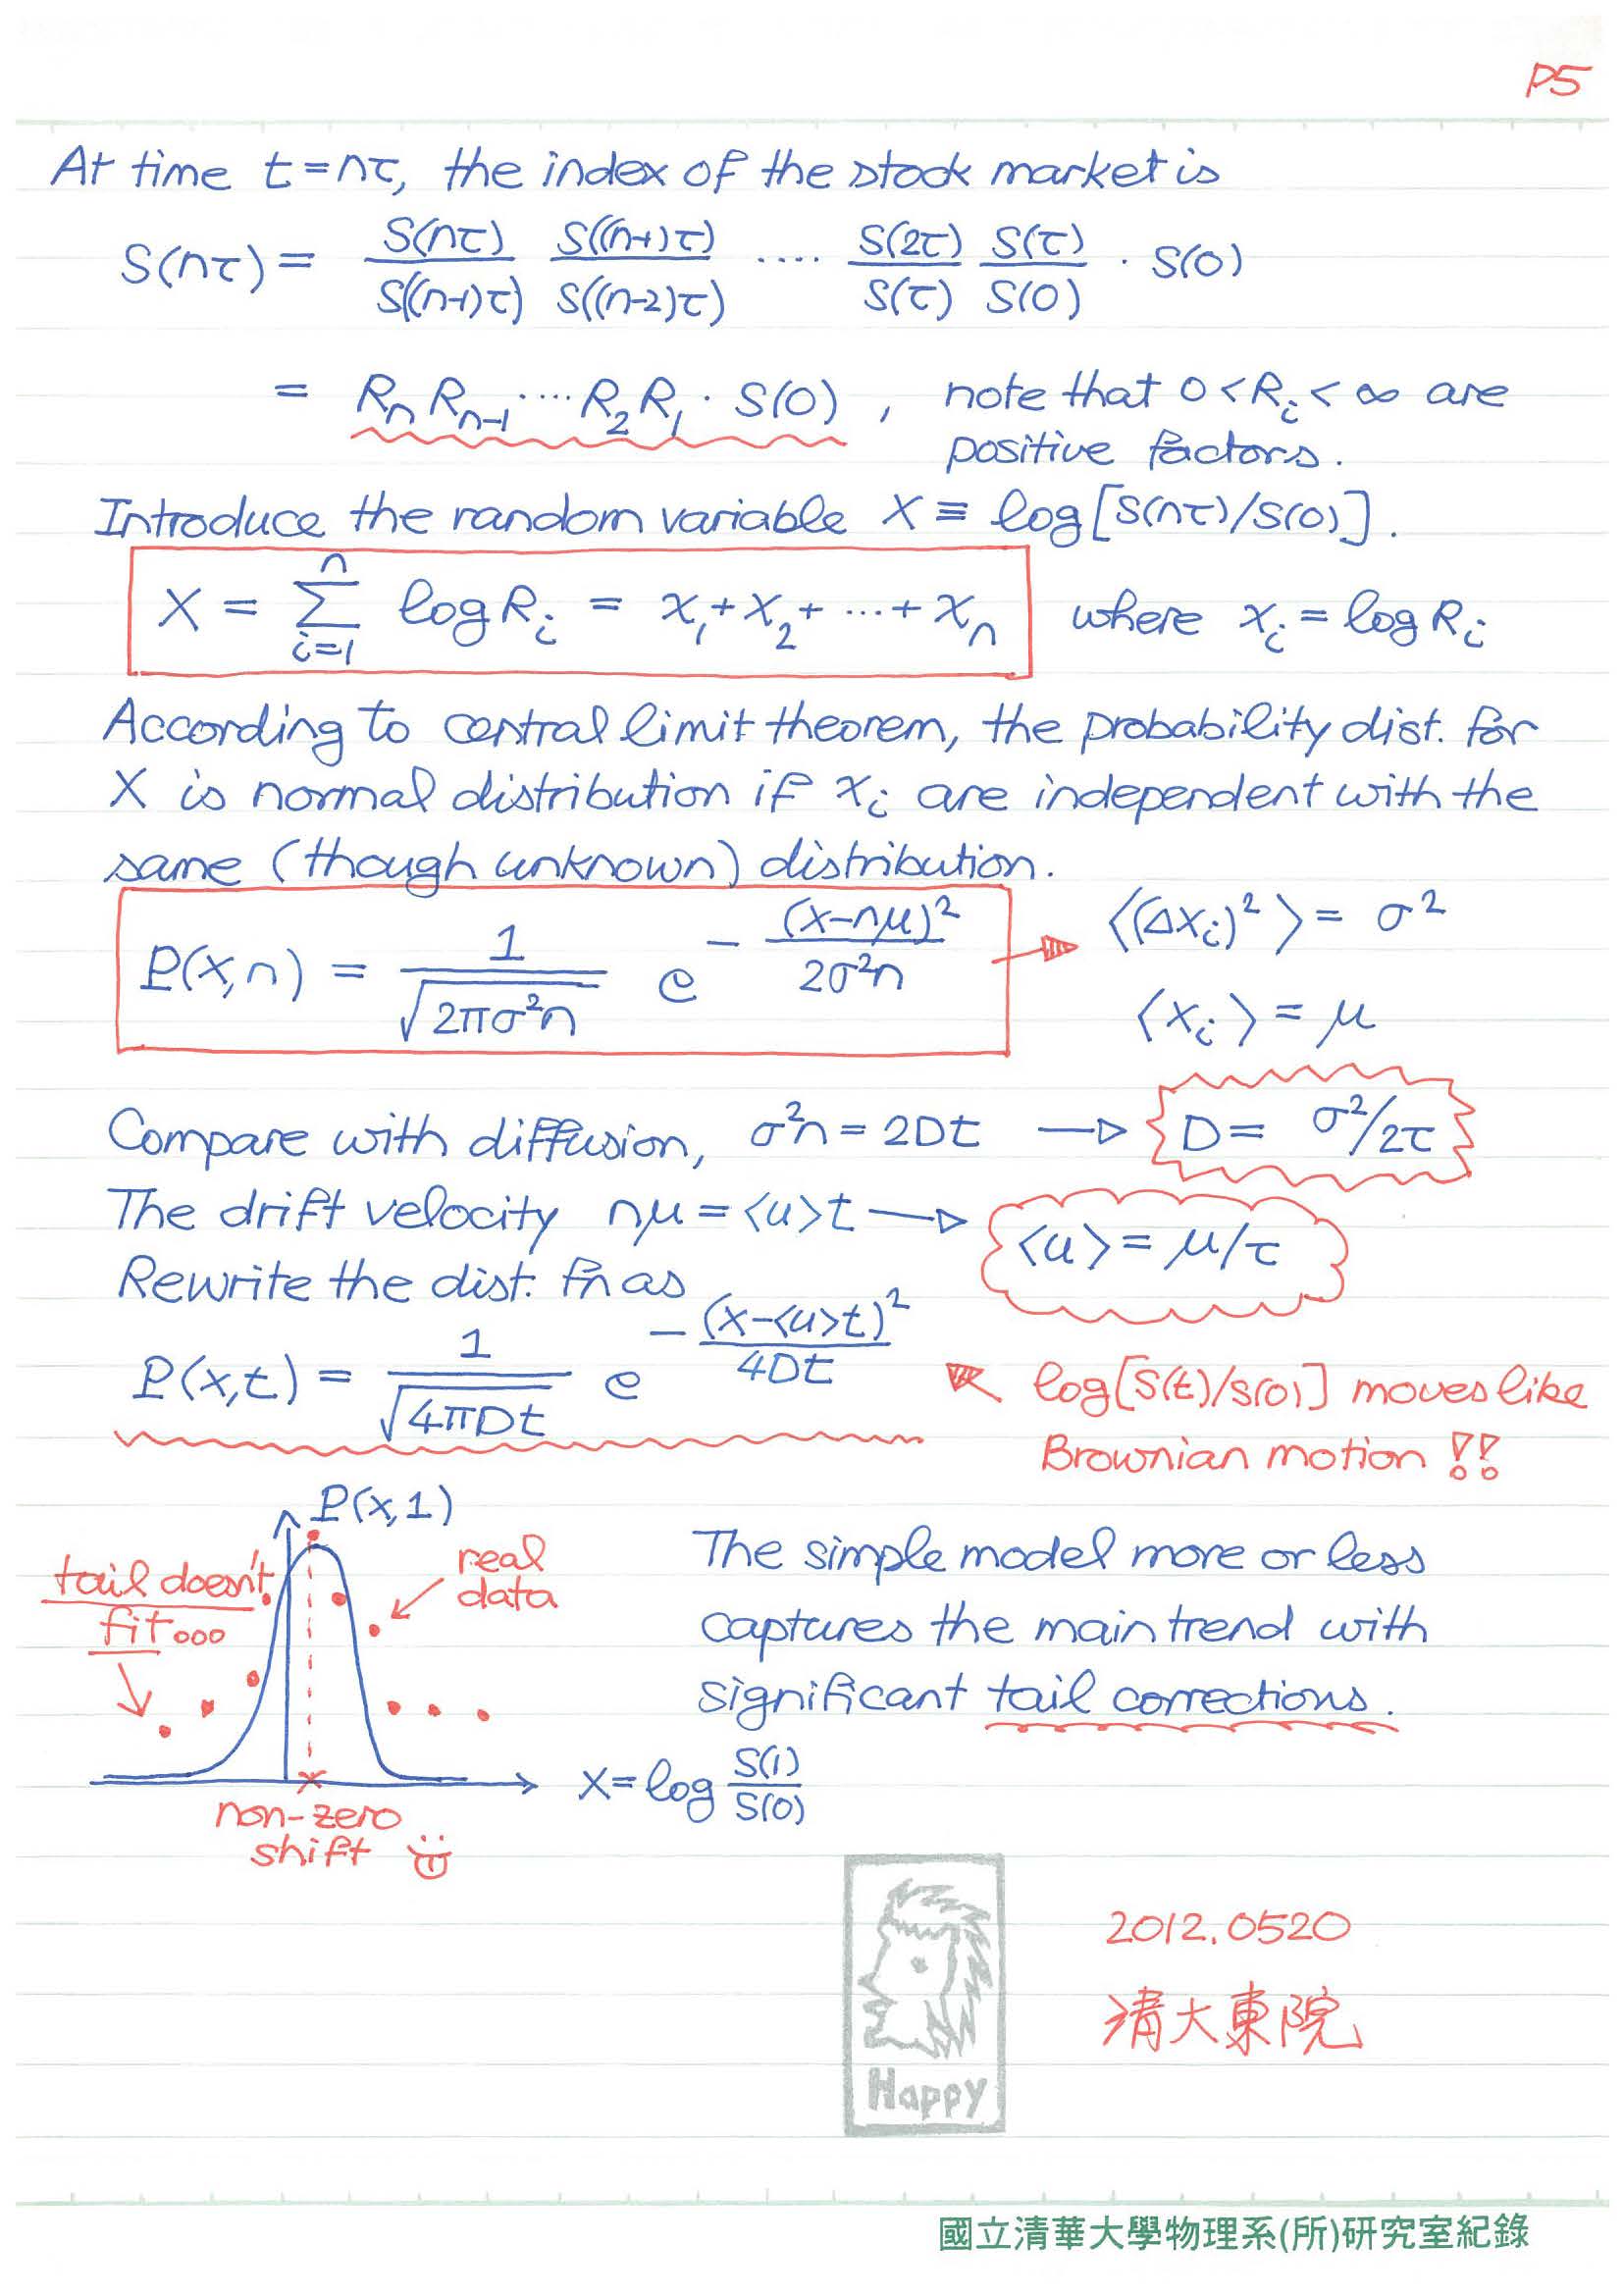 P5
At time t=nτ, the index of the stock market is
S(nτ) = S(nτ)/S((n-1)τ) S((n-1)τ)/S((n-2)τ) ···· S(2τ)/S(τ) S(τ)/S(0) · S(0)
= Rₙ Rₙ₋₁ ···· R₂ R₁ · S(0) , note that 0 < Rᵢ < ∞ are
positive factors.
Introduce the random variable X ≡ log[S(nτ)/S(0)].
X = Σᵢ₌₁ⁿ log Rᵢ = x₁ + x₂ + ··· + xₙ where xᵢ = log Rᵢ
According to central limit theorem, the probability dist. for
X is normal distribution if xᵢ are independent with the
same (though unknown) distribution.
P(x,n) = 1/√(2πσ²n) e^(-(x-nμ)²/2σ²n) → ⟨(Δxᵢ)²⟩ = σ²
⟨xᵢ⟩ = μ
Compare with diffusion, σ²n = 2Dt → D = σ²/2τ
The drift velocity nμ = <u>t → <u> = μ/τ
Rewrite the dist. fn as
P(x,t) = 1/√(4πDt) e^(-(x-<u>t)²/4Dt)
log[S(t)/S(0)] moves like
Brownian motion !!
P(x,1)
tail doesn't
fit...
real
data
The simple model more or less
captures the main trend with
significant tail corrections.
X = log S(1)/S(0)
non-zero
shift
Happy
2012.0520
清大東院
國立清華大學物理系(所)研究室紀錄